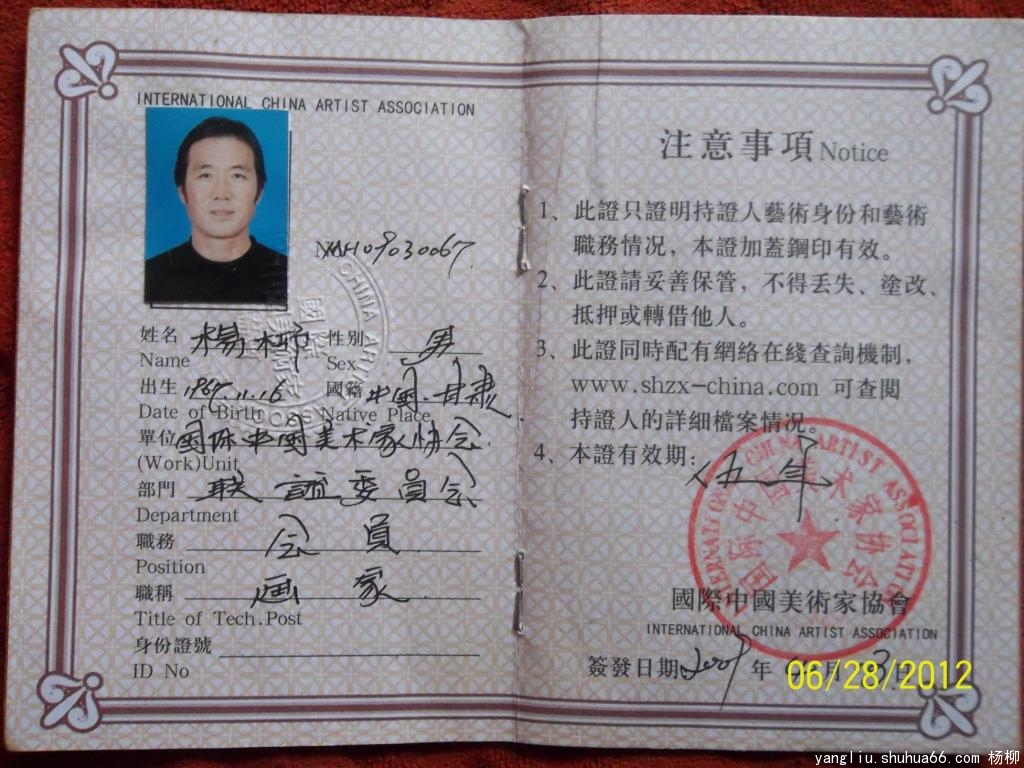 INTERNATIONAL CHINA ARTIST ASSOCIATION
09030067
姓名 楊柳 性别 男
Name Sex
出生 11.16 國籍 中國.甘肅
Date of Birth Native Place
單位 国际中国美术家协会
(Work)Unit
部門 联谊委員会
Department
職務 会員
Position
職稱 画家
Title of Tech.Post
身份證號
ID No
注意事項 Notice
1、此證只證明持證人藝術身份和藝術
職務情况，本證加蓋鋼印有效。
2、此證請妥善保管，不得丢失、塗改、
抵押或轉借他人。
3、此證同時配有網絡在綫查詢機制，
www.shzx-china.com 可查閲
持證人的詳細檔案情况。
4、本證有效期：伍年
國際中國美術家協會
INTERNATIONAL CHINA ARTIST ASSOCIATION
簽發日期 2009 年 月 3 日
INTERNATIONAL CHINA ARTIST ASSOCIATION
国际中国美术家协会
CHINA ARTIST
06/28/2012
yangliu.shuhua66.com 杨柳